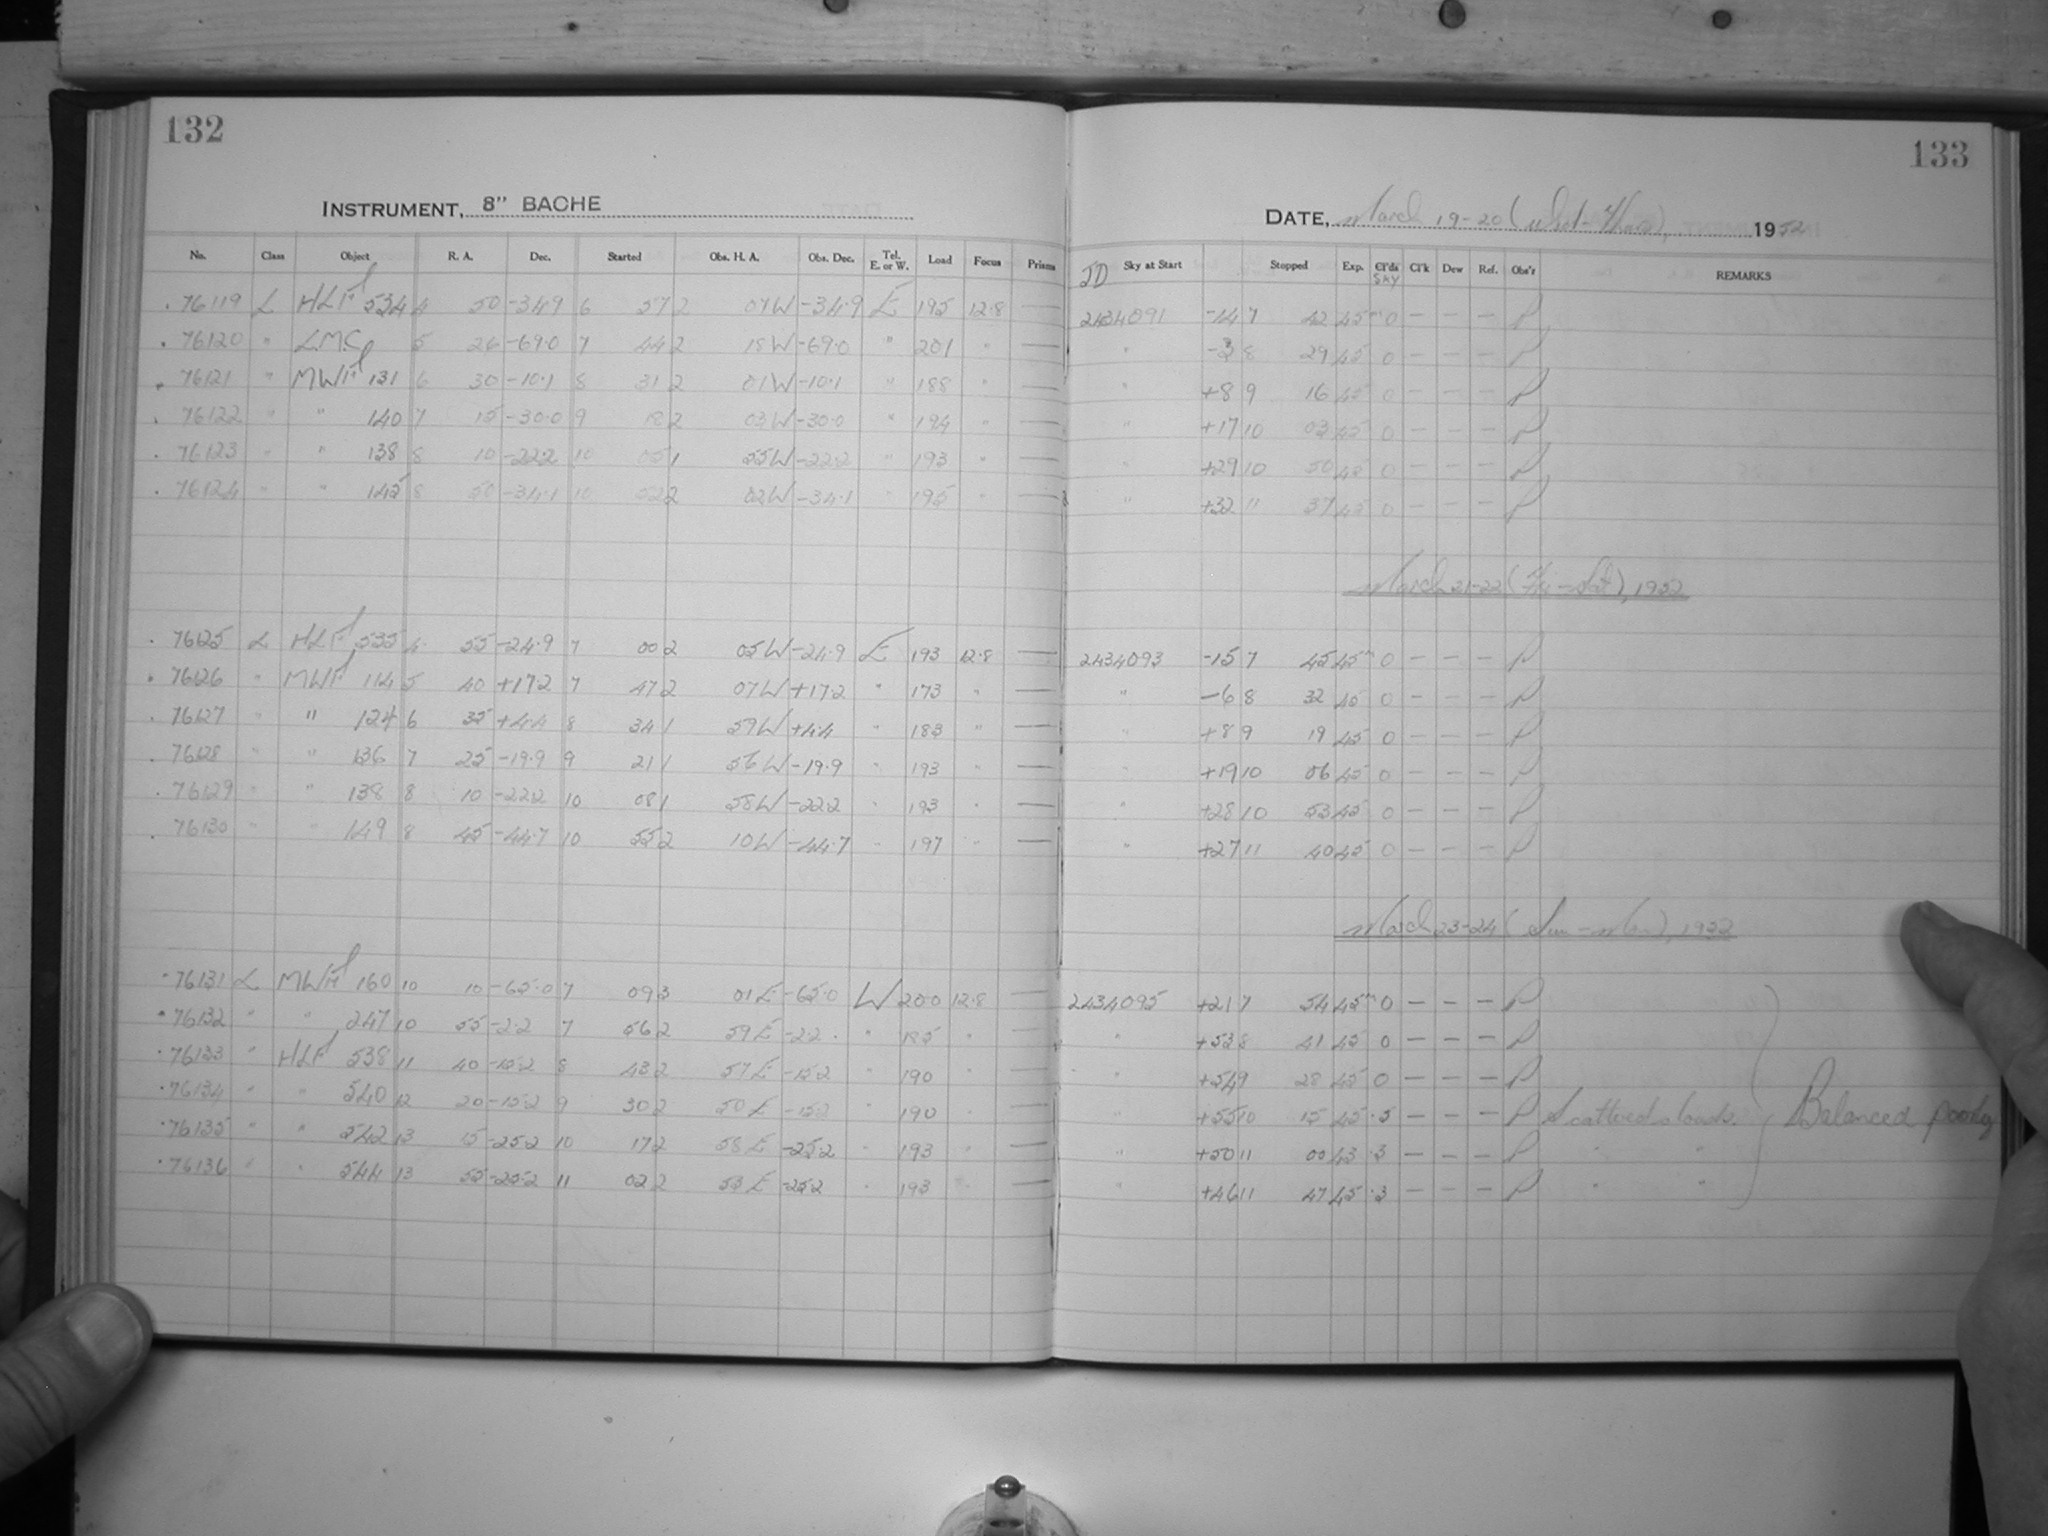 132
133
INSTRUMENT, 8" BACHE
DATE, March 19-20 (Wed-Thurs), 1952
No. Class Object R. A. Dec. Started Obs. H. A. Obs. Dec. Tel. E. or W. Load Focus Prisms JD Sky at Start Stopped Exp. Cl'ds Sky Cl'k Dew Ref. Obs'r REMARKS
76119 L HLF 534 4 50 -34.9 6 57 2 07W -34.9 E 195 12.8 — 2434091 -14 7 42 45m 0 — — — P
76120 " LMC 5 26 -69.0 7 44 2 18W -69.0 " 201 " — " -3 8 29 45 0 — — — P
76121 " MWF 131 6 30 -10.1 8 31 2 01W -10.1 " 188 " — " +8 9 16 45 0 — — — P
76122 " " 140 7 15 -30.0 9 18 2 03W -30.0 " 194 " — " +17 10 03 45 0 — — — P
76123 " " 138 8 10 -22.2 10 05 1 55W -22.2 " 193 " — " +29 10 50 45 0 — — — P
76124 " " 145 8 50 -34.1 10 52 2 02W -34.1 " 195 " — " +32 11 37 45 0 — — — P
March 21-22 (Fri-Sat), 1952
76125 L HLF 535 4 55 -24.9 7 00 2 05W -24.9 E 193 12.8 — 2434093 -15 7 45 45m 0 — — — P
76126 " MWF 114 5 40 +17.2 7 47 2 07W +17.2 " 173 " — " -6 8 32 45 0 — — — P
76127 " " 124 6 35 +4.4 8 34 1 59W +4.4 " 183 " — " +8 9 19 45 0 — — — P
76128 " " 136 7 25 -19.9 9 21 1 56W -19.9 " 193 " — " +19 10 06 45 0 — — — P
76129 " " 138 8 10 -22.2 10 08 1 58W -22.2 " 193 " — " +28 10 53 45 0 — — — P
76130 " " 149 8 45 -44.7 10 55 2 10W -44.7 " 197 " — " +27 11 40 45 0 — — — P
March 23-24 (Sun-Mon), 1952
76131 L MWF 160 10 10 -65.0 7 09 3 01E -65.0 W 200 12.8 — 2434095 +21 7 54 45m 0 — — — P
76132 " " 247 10 55 -2.2 7 56 2 59E -2.2 " 185 " — " +53 8 41 45 0 — — — P
76133 " HLF 538 11 40 -15.2 8 43 2 57E -15.2 " 190 " — " +54 9 28 45 0 — — — P
76134 " " 540 12 20 -15.2 9 30 2 50E -15.2 " 190 " — " +55 10 15 45 .5 — — — P Scattered clouds. Balanced poorly
76135 " " 542 13 15 -25.2 10 17 2 58E -25.2 " 193 " — " +50 11 00 43 .3 — — — P " "
76136 " " 544 13 55 -25.2 11 02 2 53E -25.2 " 193 " — " +46 11 47 45 .3 — — — P " "